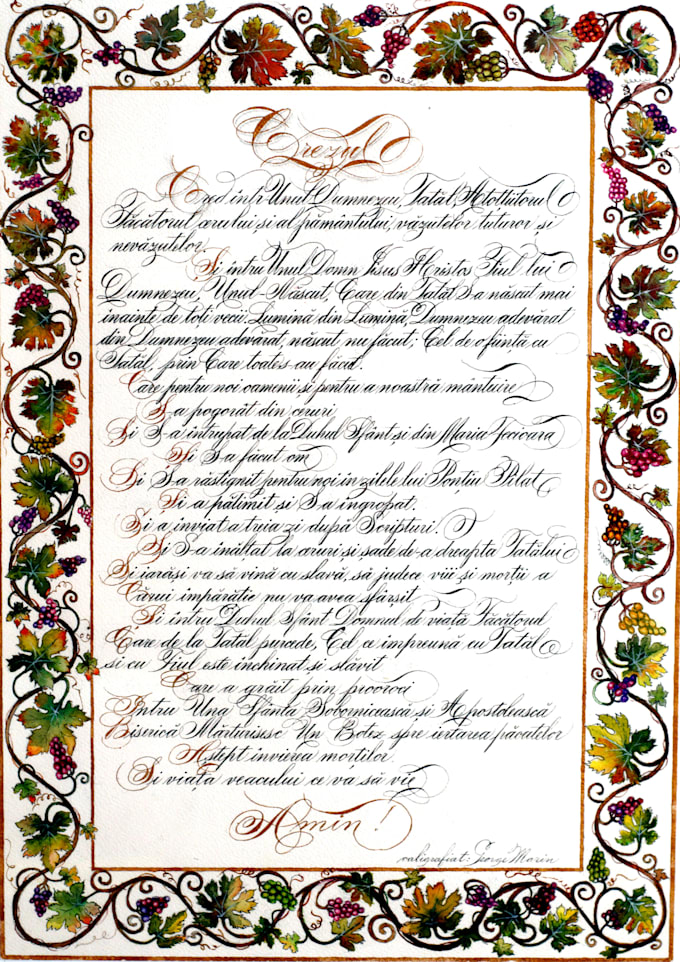 Crezul
Cred într Unul Dumnezeu, Tatăl, Atotțiitorul
Făcătorul cerului și al pământului, văzutelor tuturor și
nevăzutelor.
Și întru Unul Domn Iisus Hristos Fiul lui
Dumnezeu, Unul-Născut, Care din Tatăl S-a născut mai
înainte de toți vecii; Lumină din Lumină, Dumnezeu adevărat
din Dumnezeu adevărat, născut nu făcut; Cel de o ființă cu
Tatăl, prin Care toate s-au făcut.
Care pentru noi oamenii și pentru a noastră mântuire
S-a pogorât din ceruri
Și S-a întrupat de la Duhul Sfânt și din Maria Fecioara
Și S-a făcut om
Și S-a răstignit pentru noi în zilele lui Ponțiu Pilat
Și a pătimit și S-a îngropat.
Și a înviat a treia zi după Scripturi.
Și S-a înălțat la ceruri și șade de-a dreapta Tatălui
Și iarăși va să vină cu slavă, să judece viii și morții a
Cărui împărăție nu va avea sfârsit
Și întru Duhul Sfânt Domnul de viață Făcătorul
Care de la Tatăl purcede, Cel ce împreună cu Tatăl
și cu Fiul este închinat și slăvit
Care a grăit prin prooroci
Întru Una Sfântă Sobornicească și Apostolească
Biserică Mărturisisc Un Botez spre iertarea păcatelor
Aștept învierea morților.
Și viața veacului ce va să vie
Amin!
caligrafiat: George Marin